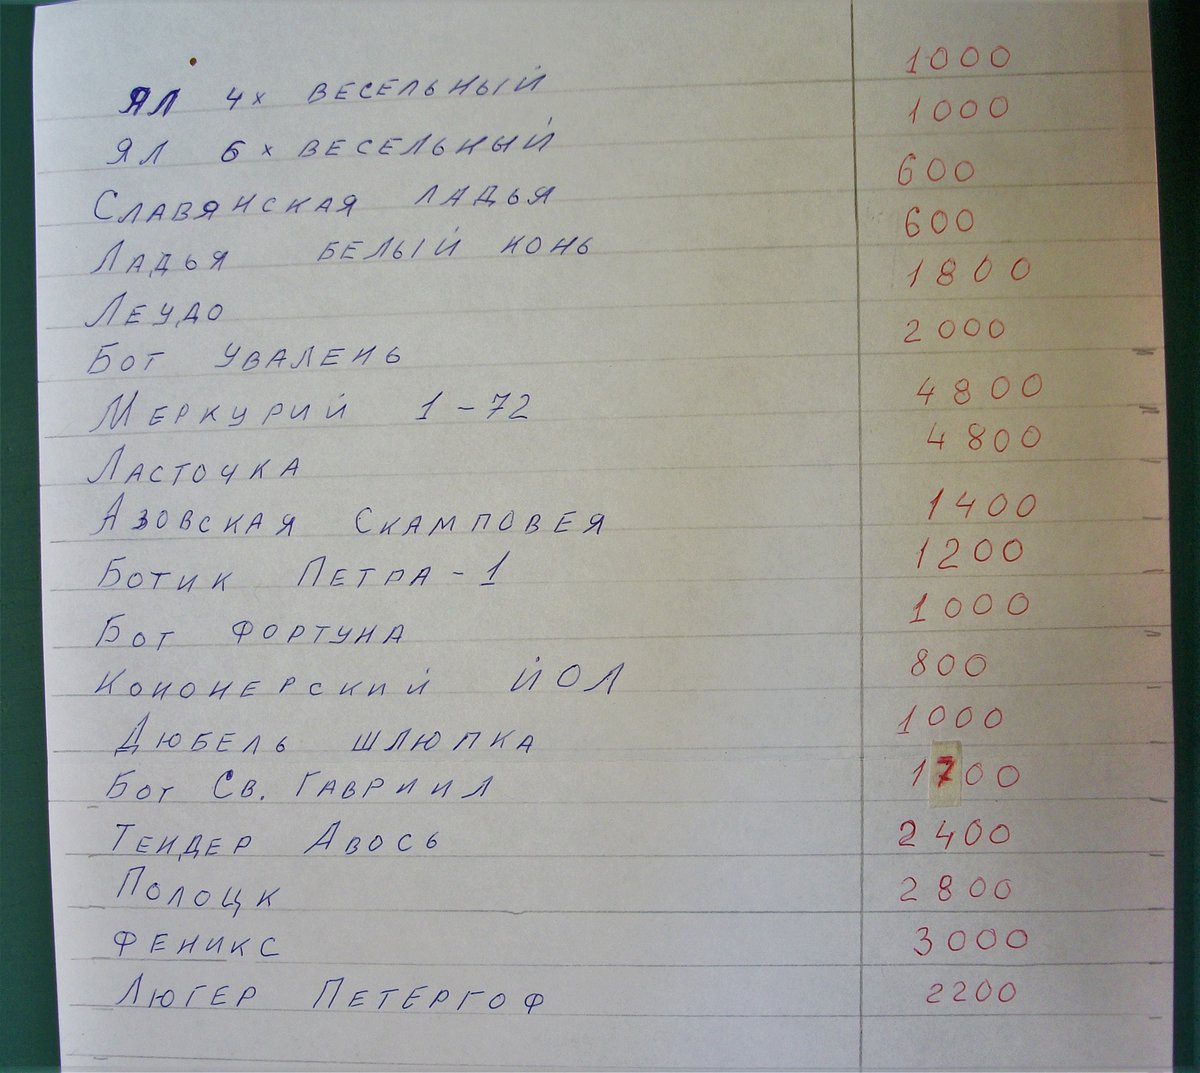 ЯЛ 4х ВЕСЕЛЬНЫЙ 1000
ЯЛ 6х ВЕСЕЛЬНЫЙ 1000
СЛАВЯНСКАЯ ЛАДЬЯ 600
ЛАДЬЯ БЕЛЫЙ КОНЬ 600
ЛЕУДО 1800
БОТ УВАЛЕНЬ 2000
МЕРКУРИЙ 1-72 4800
ЛАСТОЧКА 4800
АЗОВСКАЯ СКАМПОВЕЯ 1400
БОТИК ПЕТРА-1 1200
БОТ ФОРТУНА 1000
КОНОНЕРСКИЙ ЙОЛ 800
ДЮБЕЛЬ ШЛЮПКА 1000
БОТ СВ. ГАВРИИЛ 1700
ТЕНДЕР АВОСЬ 2400
ПОЛОЦК 2800
ФЕНИКС 3000
ЛЮГЕР ПЕТЕРГОФ 2200